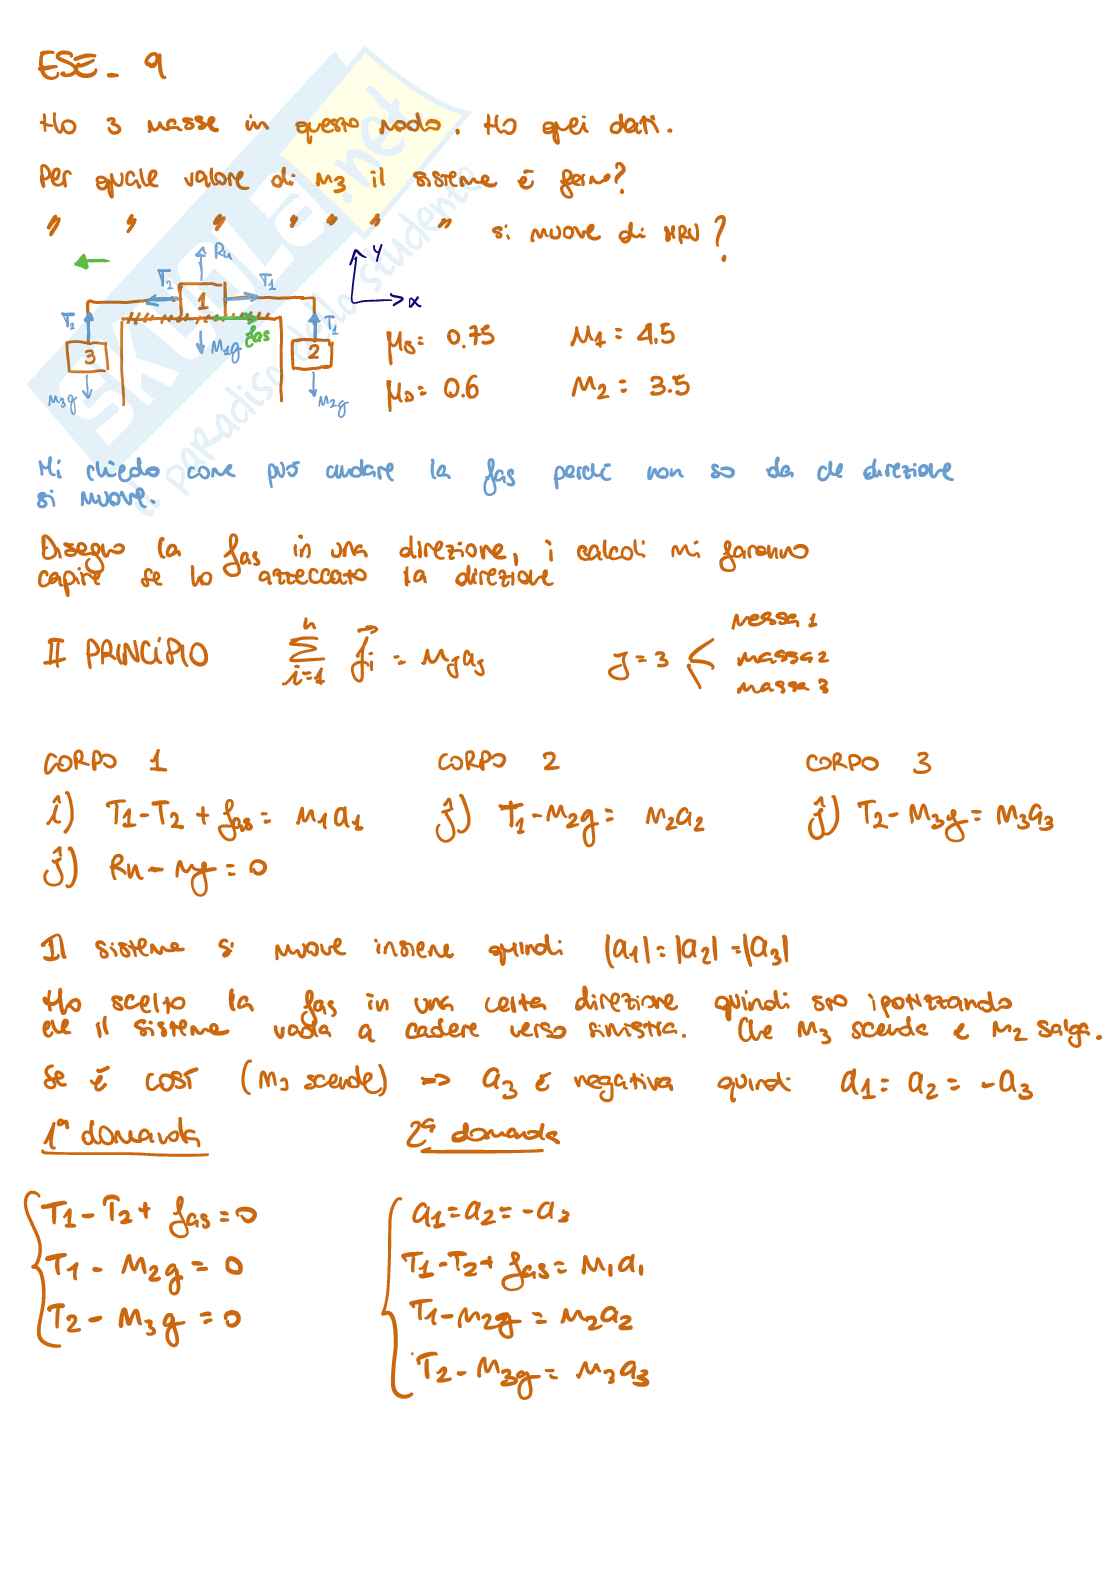 ESE_ 9
Ho 3 masse in questo modo. Ho quei dati.
Per quale valore di m3 il sistema è fermo?
" " " " " " " si muove di MRU?
Rn
T2 1 T1
y
x
T2 T1
fas
3 M1g 2
m3g m2g
μs= 0.75 M1 = 4.5
μD= 0.6 M2 = 3.5
Mi chiedo come può andare la fas perché non so da che direzione
si muove.
Disegno la fas in una direzione, i calcoli mi faranno
capire se ho azzeccato la direzione
II PRINCIPIO n Σ i=1 fi = mjaj J = 3 < massa 1
massa 2
massa 3
CORPO 1 CORPO 2 CORPO 3
î) T1-T2 + fas = m1a1 ĵ) T1-m2g = m2a2 ĵ) T2-m3g = m3a3
ĵ) Rn - mg = 0
Il sistema si muove insieme quindi |a1| = |a2| = |a3|
Ho scelto la fas in una certa direzione quindi sto ipotizzando
che il sistema vada a cadere verso sinistra. Che m3 scende e m2 salga.
Se è così (m3 scende) => a3 è negativa quindi a1 = a2 = -a3
1ª domanda 2ª domanda
T1-T2+ fas = 0 a1 = a2 = -a3
T1 - m2g = 0 T1-T2+ fas = m1a1
T2 - m3g = 0 T1-m2g = m2a2
T2-m3g = m3a3
SKUOLA.net
il paradiso dello studente